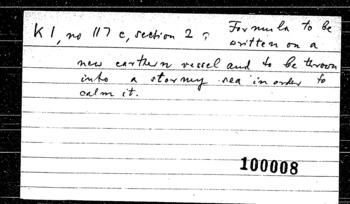 K 1, no 117 c, section 2: Formula to be
written on a
new earthern vessel and to be thrown
into a stormy sea in order to
calm it.
100008